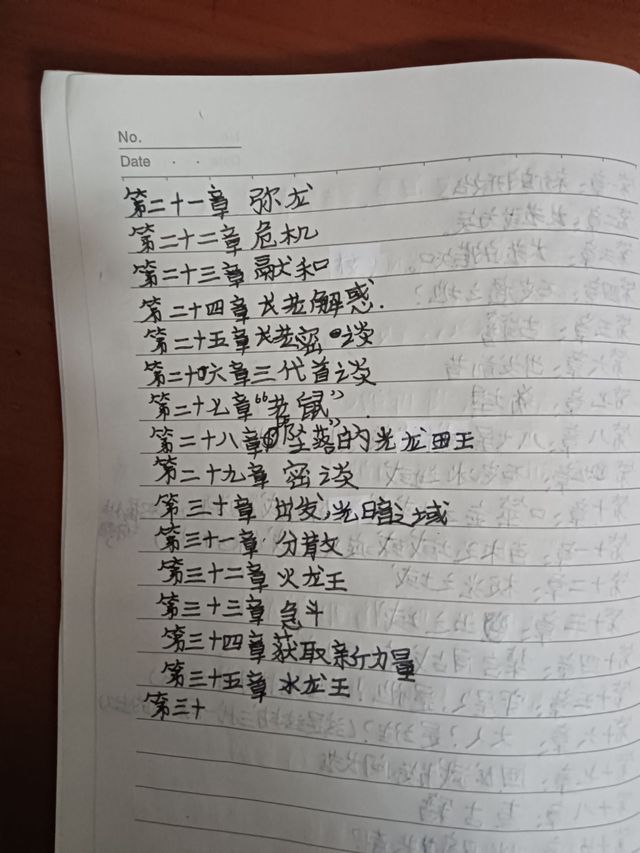 No.
Date
第二十一章 弥龙
第二十二章 危机
第二十三章 融和
第二十四章 长老解惑.
第二十五章 长老密谈
第二十六章 三代首谈
第二十七章 “老鼠”
第二十八章 “坠落”的光龙王
第二十九章 密谈
第三十章 出发,光暗之域
第三十一章 分散
第三十二章 火龙王
第三十三章 急斗
第三十四章 获取新力量
第三十五章 水龙王
第三十